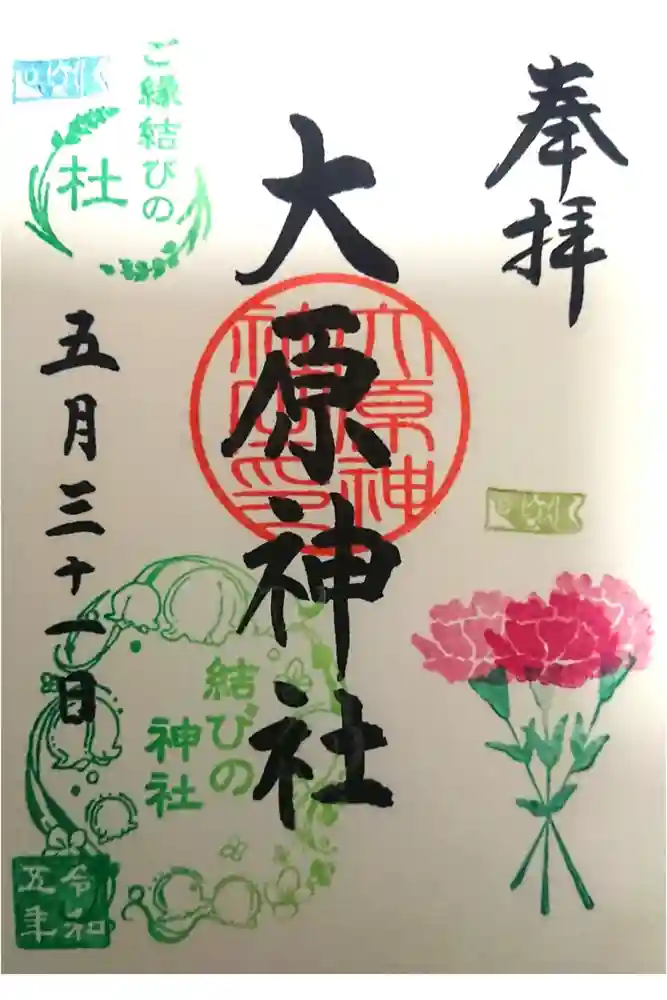 奉拝
大原神社
大原神社宮印
ご縁結びの
杜
五月三十一日
結びの
神社
令和
五年